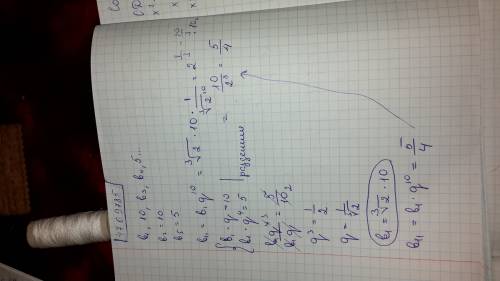 b₁, 10, b₃, b₄, 5...
b₂ = 10
b₅ = 5
b₁₁ = b₁q¹⁰ = ∛2 · 10 · 1/∛2¹⁰ = 2^(1/3 - 10/3) · 10 =
= 10/2³ = 5/4
{ b₁ · q = 10
{ b₁ · q⁴ = 5 | разделим
b₁q⁴/b₁q = 5/10
q³ = 1/2
q = 1/∛2
b₁ = ∛2 · 10
b₁₁ = b₁ · q¹⁰ = 5/4